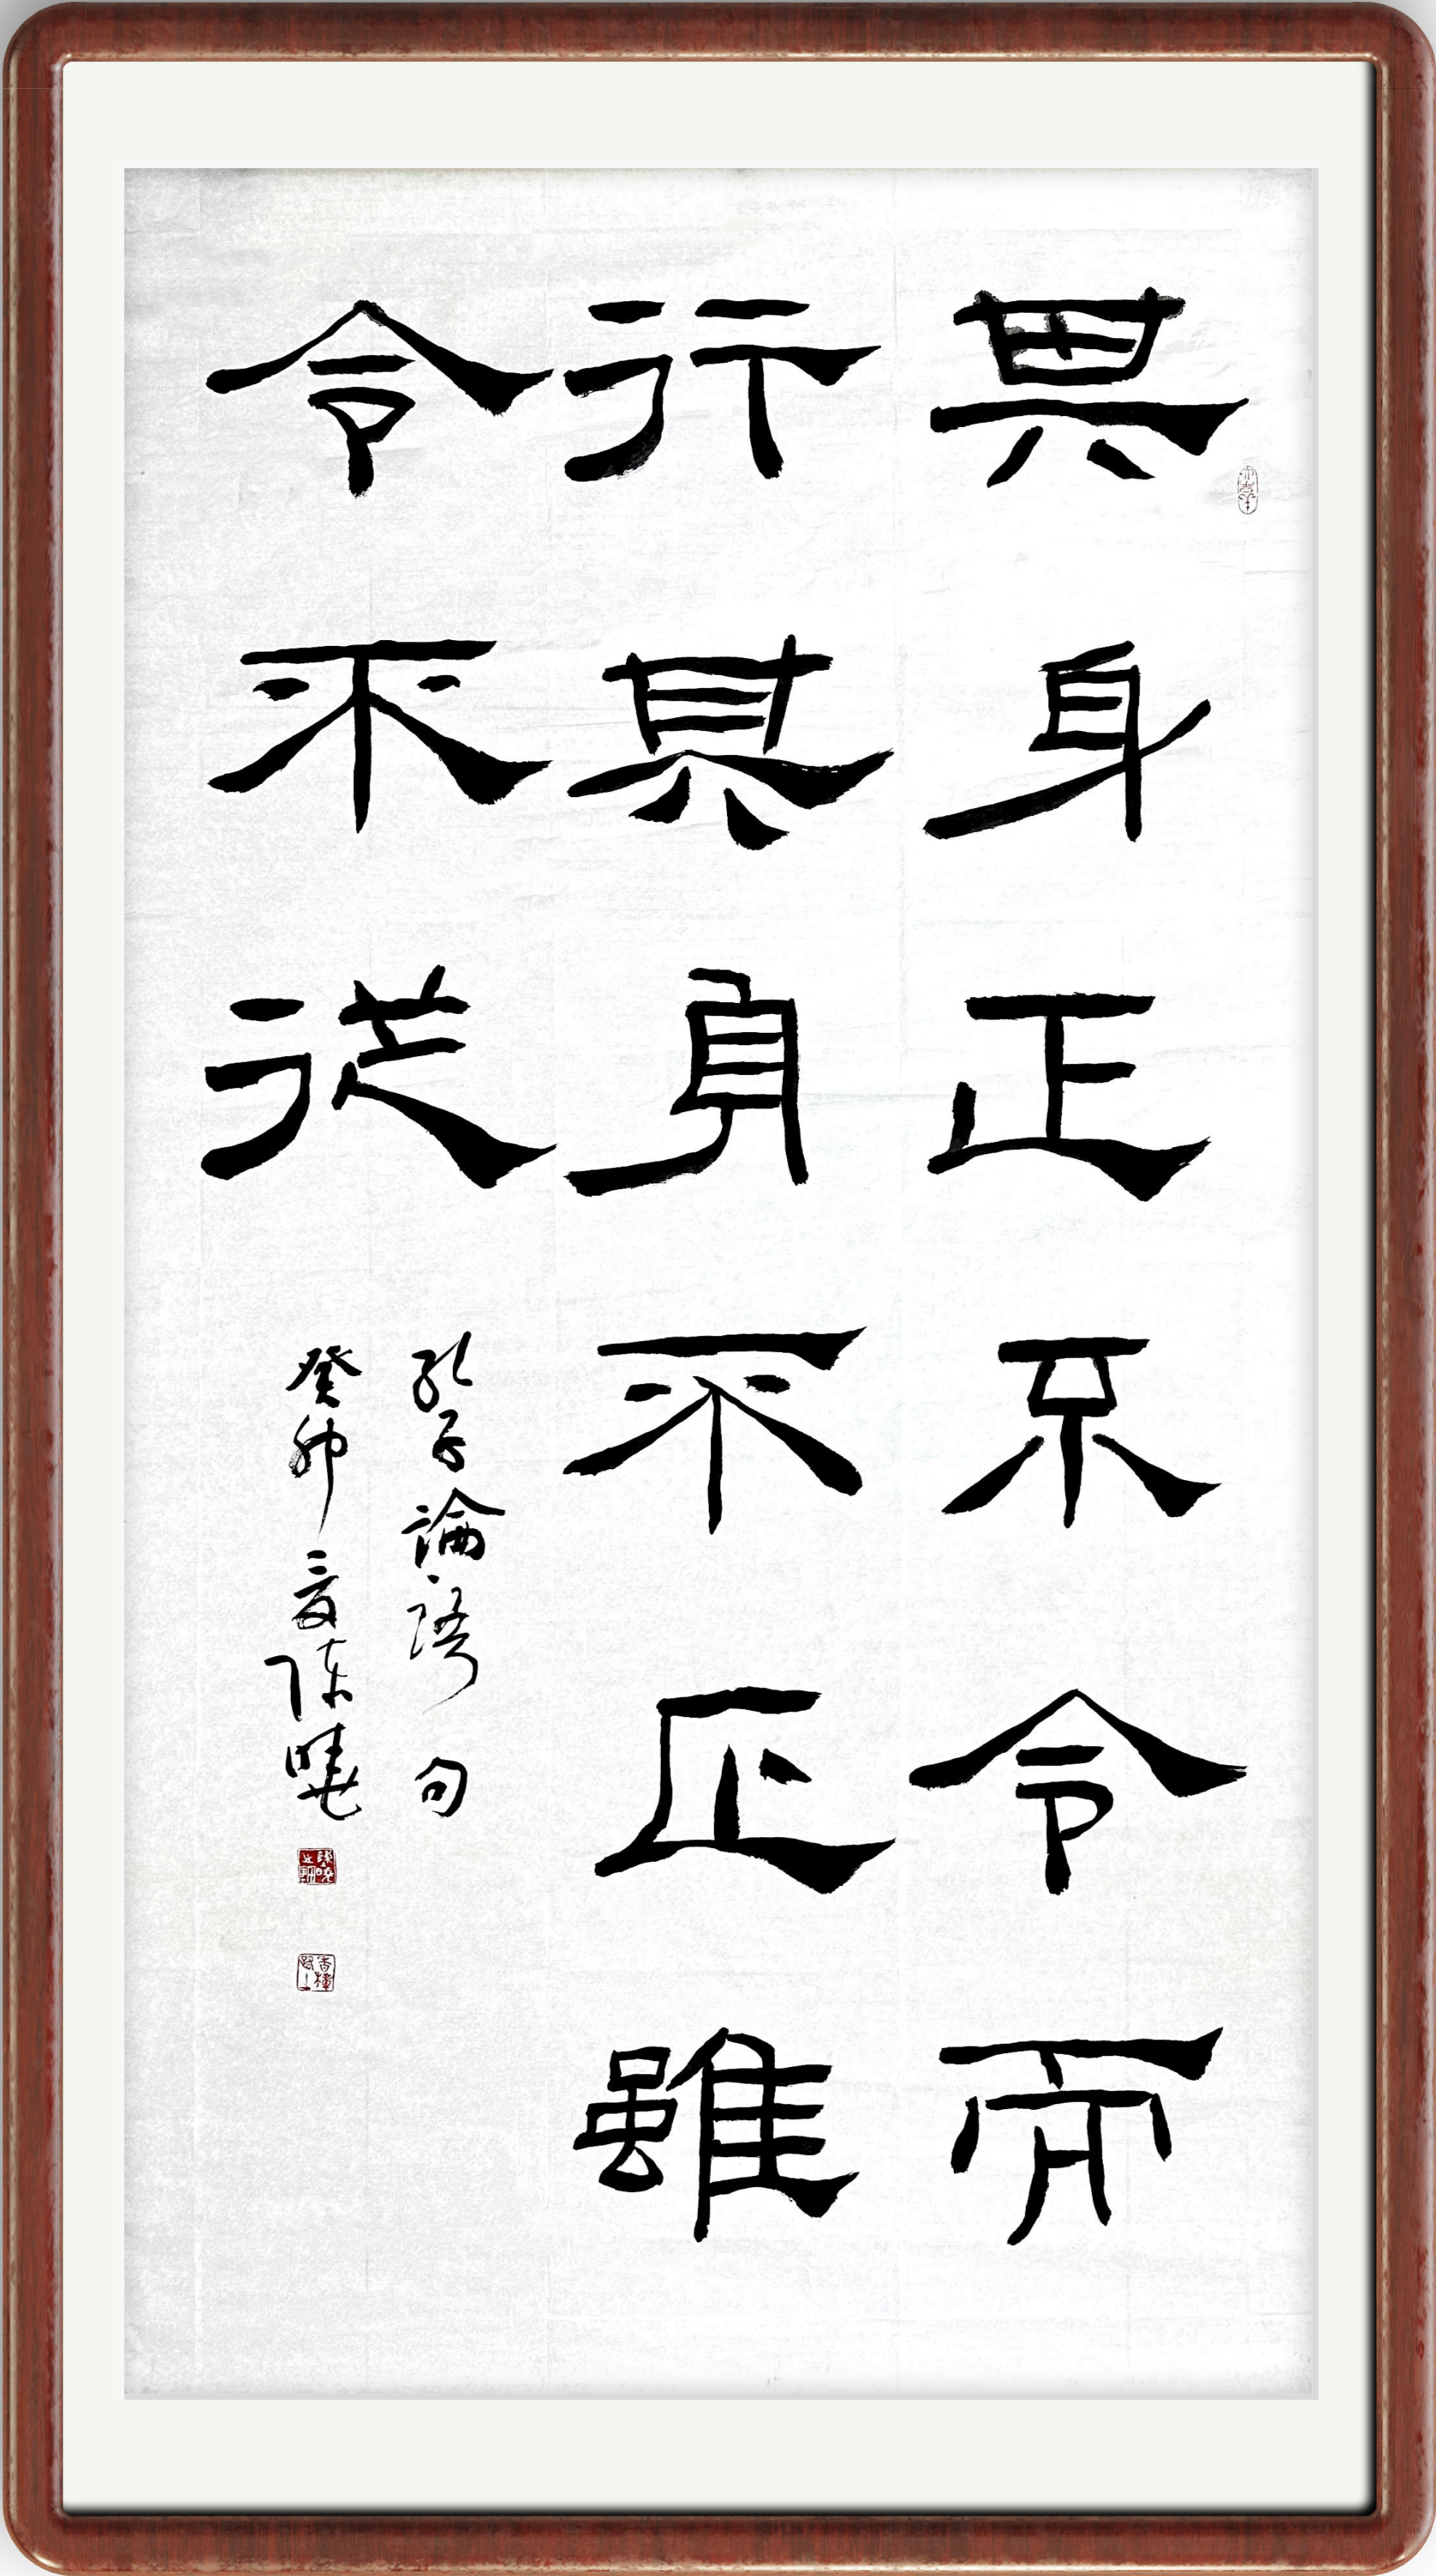 其身正不令而
行其身不正雖
令不從
孔子論語句
癸卯夏陳曉